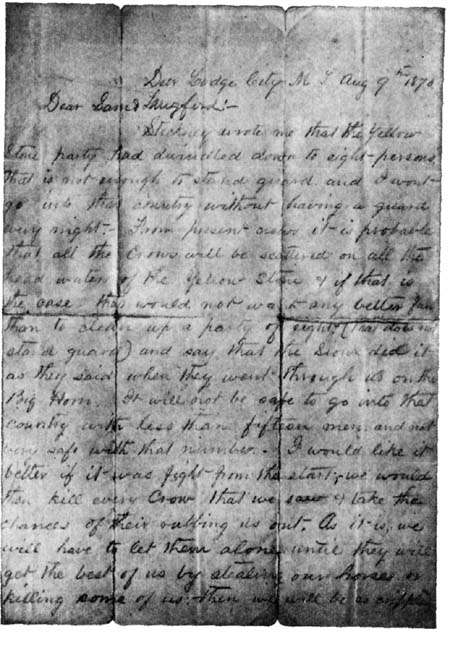 Deer Lodge City M. T. Aug 9th 1870
Dear Sam & Langford:-
Stickney wrote me that the Yellow
Stone party had dwindled down to eight persons
that is not enough to stand guard and I wont
go into that country without having a guard
every night. From present news it is probable
that all the Crows will be scattered on all the
head waters of the Yellow Stone & if that is
the case they would not want any better fun
than to clean up a party of eight (that does not
stand guard) and say that the Sioux did it
as they said when they went through us on the
Big Horn. It will not be safe to go into that
country with less than fifteen men and not
very safe with that number. I would like it
better if it was fight from the start; we would
then kill every Crow that we saw & take the
chances of their rubbing us out. As it is, we
will have to let them alone until they will
get the best of us by stealing our horses or
killing some of us: then we will be so crippled